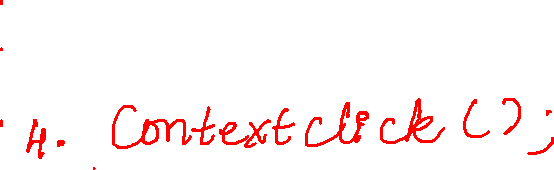 4. Contextclick();